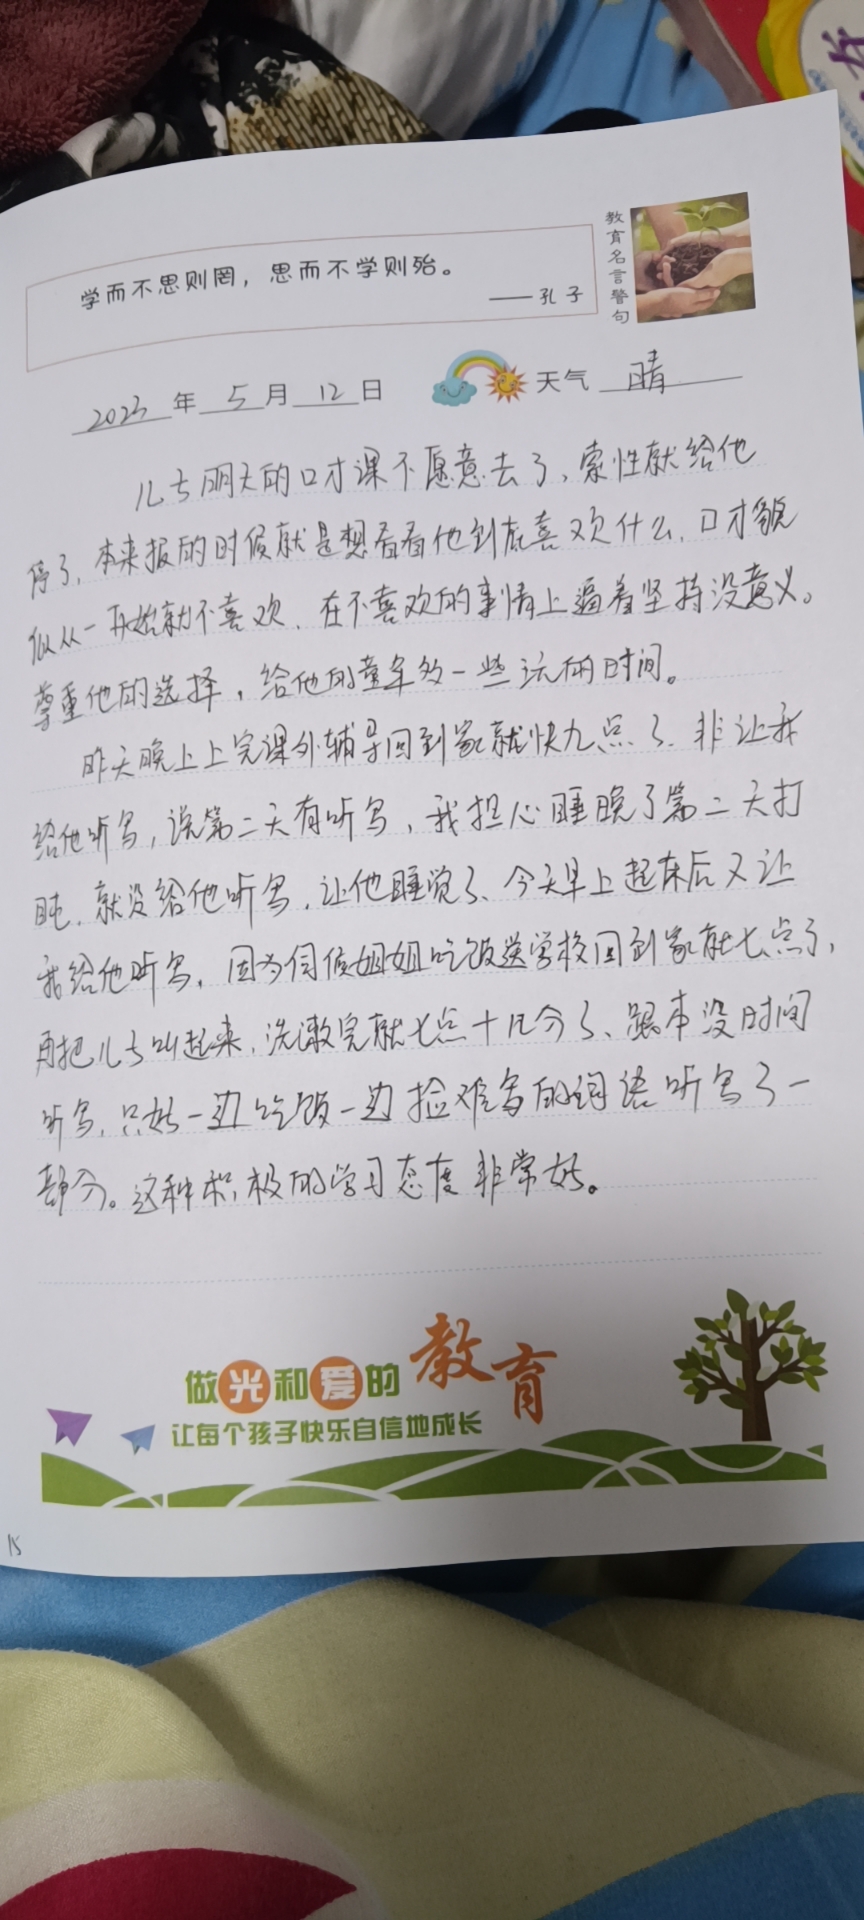 学而不思则罔，思而不学则殆。
——孔子
教育名言警句
2023年5月12日 天气 晴
儿子明天的口才课不愿意去了，索性就给他
停了，本来报的时候就是想看看他到底喜欢什么，口才貌
似从一开始就不喜欢，在不喜欢的事情上逼着坚持没意义。
尊重他的选择，给他的童年多一些玩的时间。
昨天晚上上完课外辅导回到家就快九点了，非让我
给他听写，说第二天有听写，我担心睡晚了第二天打
盹，就没给他听写，让他睡觉了、今天早上起床后又让
我给他听写，因为伺候姐姐吃饭送学校回到家就七点了，
再把儿子叫起来，洗漱完就七点十几分了、跟本没时间
听写，只好一边吃饭一边捡难写的词语听写了一
部分。这种积极的学习态度非常好。
做光和爱的教育
让每个孩子快乐自信地成长
15